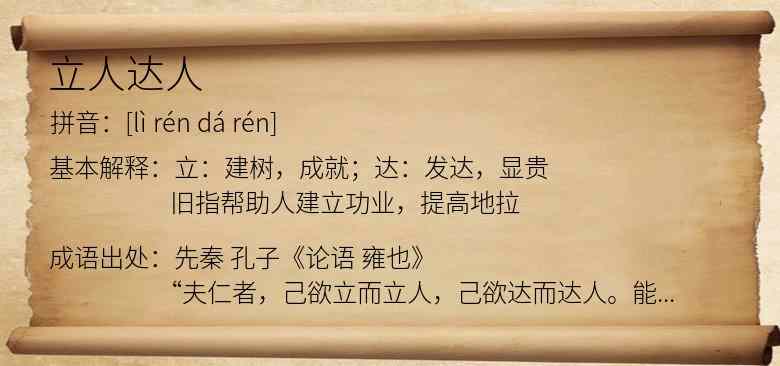 立人达人
拼音：[lì rén dá rén]
基本解释：立：建树，成就；达：发达，显贵
旧指帮助人建立功业，提高地拉
成语出处：先秦 孔子《论语 雍也》
“夫仁者，己欲立而立人，己欲达而达人。能...